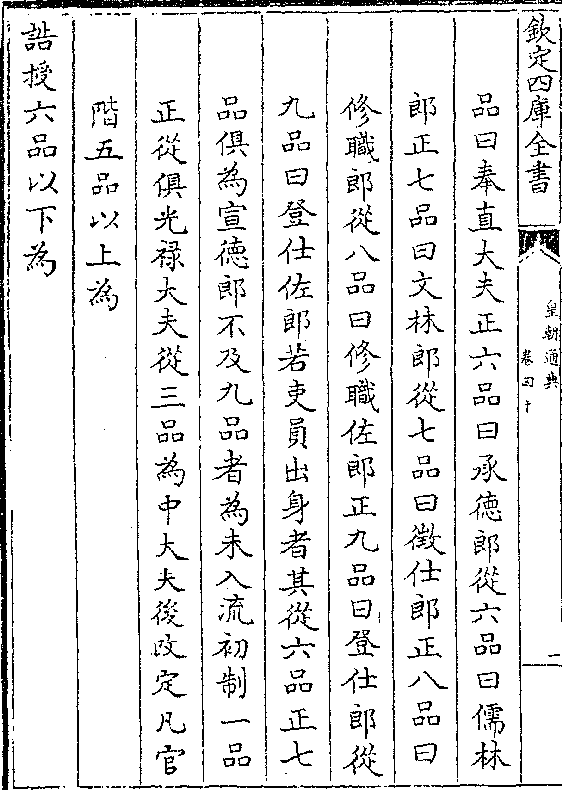 欽定四庫全書
皇朝通典
卷四十
二
品曰奉直大夫正六品曰承徳郎從六品曰儒林
郎正七品曰文林郎從七品曰徴仕郎正八品曰
修職郎從八品曰修職佐郎正九品曰登仕郎從
九品曰登仕佐郎若吏員出身者其從六品正七
品俱為宣徳郎不及九品者為未入流初制一品
正從俱光禄大夫從三品為中大夫後改定凡官
階五品以上為
誥授六品以下為